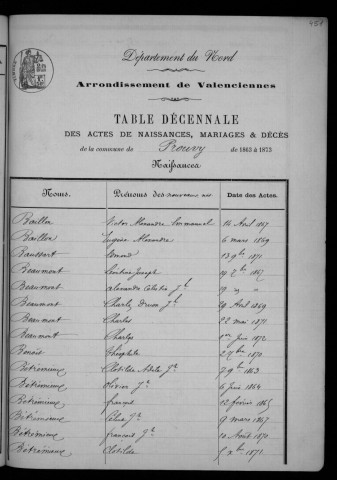 451
Département du Nord
Arrondissement de Valenciennes
TABLE DÉCENNALE
DES ACTES DE NAISSANCES, MARIAGES & DÉCÈS
de la commune de Rouvy de 1863 à 1873
Naissances
Noms. Prénoms des nouveaux nés Date des Actes.
Baillon Victor Alexandre Emmanuel 14 Avril 1867
Baillon Eugène Alexandre 6 mars 1869
Baussart Edmond 13 9bre 1871
Beaumont Joseph 19 1867
Beaumont Alexandre Célestin Jh 19
Beaumont Charles Jh 29 Avril 1869
Beaumont Charles 22 mai 1871
Beaumont Charles 1er Juin 1872
Benoit Théophile 1870
Bétrémieux Clotilde Adèle Jh 7 9bre 1863
Bétrémieux Olivier Jh 6 Juin 1864
Bétrémieux françois 22 février 1865
Bétrémieux Célina Jh 9 mars 1867
Bétrémieux françois Jh 10 Août 1870
Bétrémieux Clotilde 5 Xbre 1871